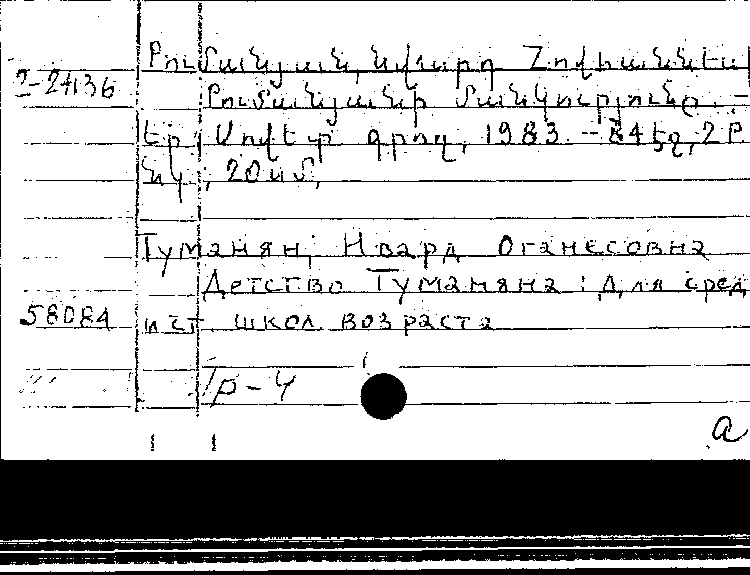 Թումանյան, Նվարդ Հովհաննեսի
2-24136
Թումանյանի մանկությունը. –
Եր.; Սովետ. գրող, 1983. – 84 էջ, 2 թ.
նկ.; 20 սմ,
Туманян, Нвард Оганесовна
Детство Туманяна: Для сред.
58084
и ст. школ. возраста
а